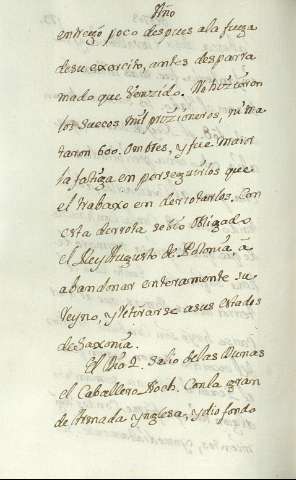 Año
entregó poco despues ala fuga
desu exercito, antes desparra
mado que Venzido. No hizieron
los suecos mil prizioneros, ni ma
taron 600. ombres, y fue maior
la fatiga en perseguirlos que
el trabaxo en derrotarlos. Con
esta derrota se vio obligado
el Rey Augusto de Polonia, a
abandonar enteramente su
reyno, y retirarse asus estados
de Saxonia.
El Dia 2. salio delas Dunas
el Caballero Rook. Con la gran
de Armada ynglesa, y dio fondo